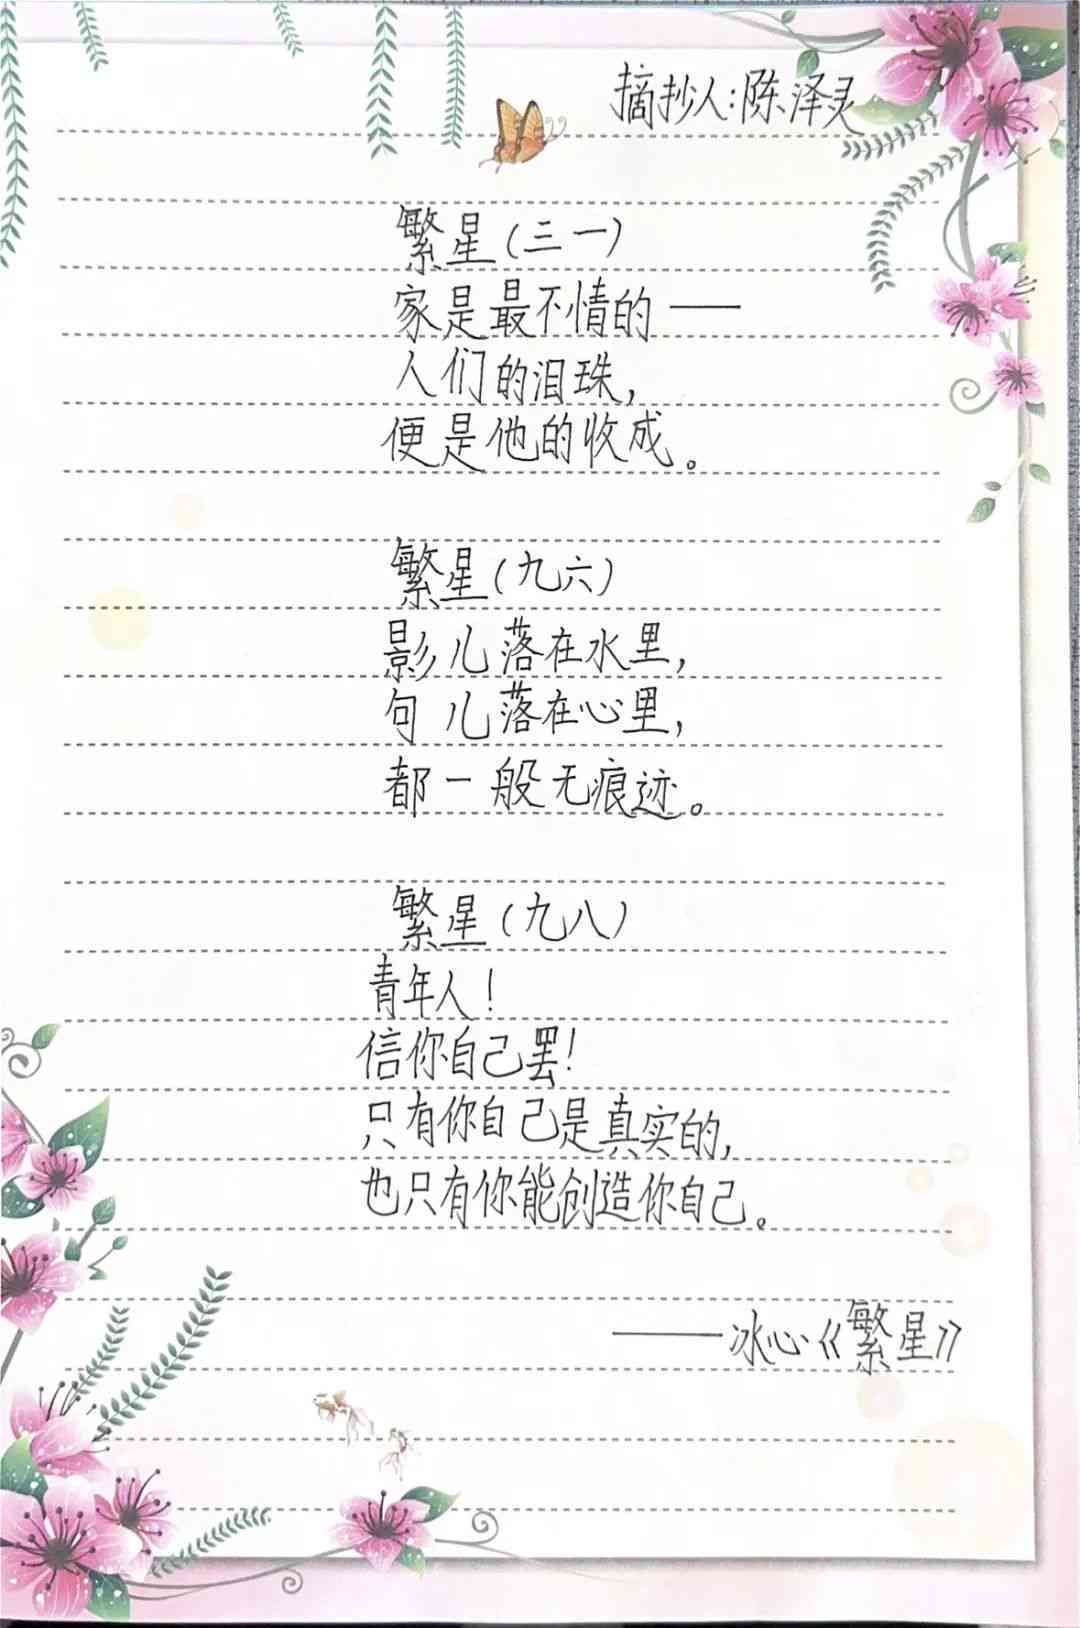 摘抄人:陈泽灵
繁星(三一)
家是最不情的——
人们的泪珠,
便是他的收成。
繁星(九六)
影儿落在水里,
句儿落在心里,
都一般无痕迹。
繁星(九八)
青年人!
信你自己罢!
只有你自己是真实的,
也只有你能创造你自己。
——冰心《繁星》